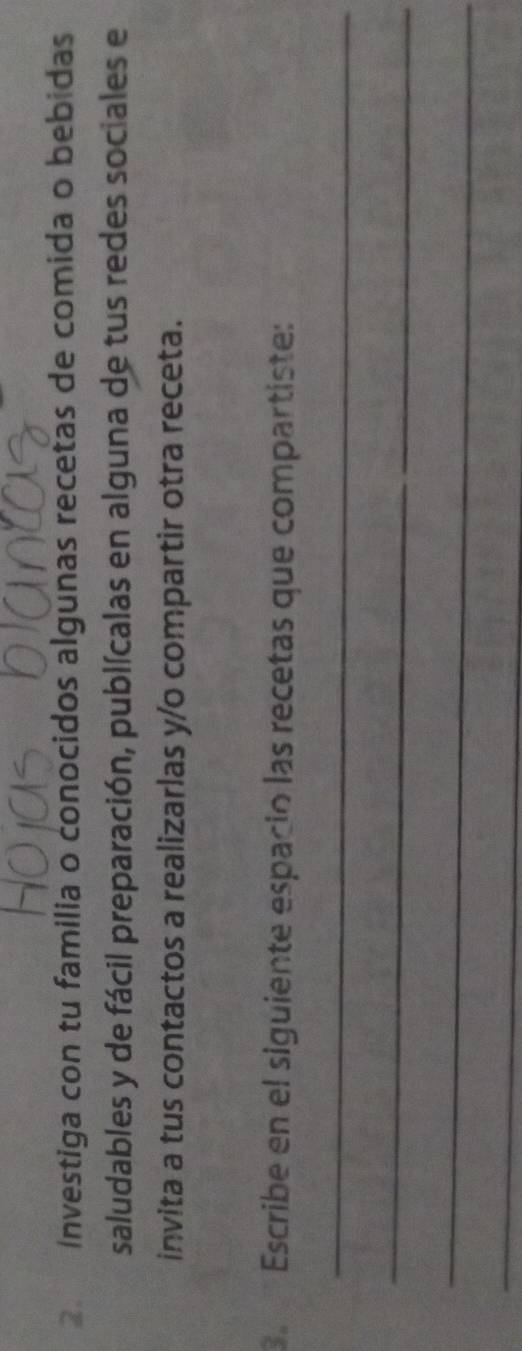 Hojas blancas
2. Investiga con tu familia o conocidos algunas recetas de comida o bebidas
saludables y de fácil preparación, publícalas en alguna de tus redes sociales e
invita a tus contactos a realizarlas y/o compartir otra receta.
3. Escribe en el siguiente espacio las recetas que compartiste: